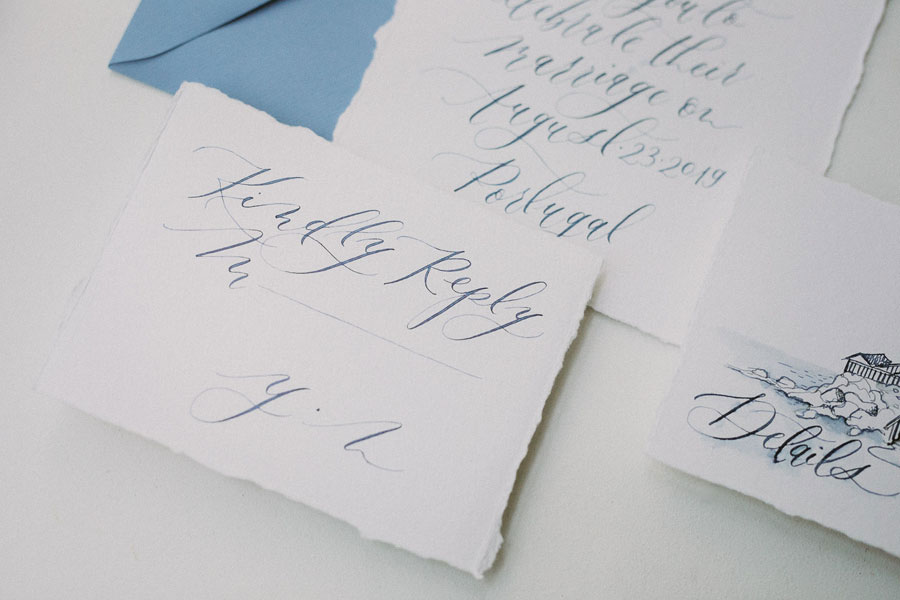 celebrate their
marriage on
August.23.2019
Portugal
Kindly Reply
M
y . n
Details